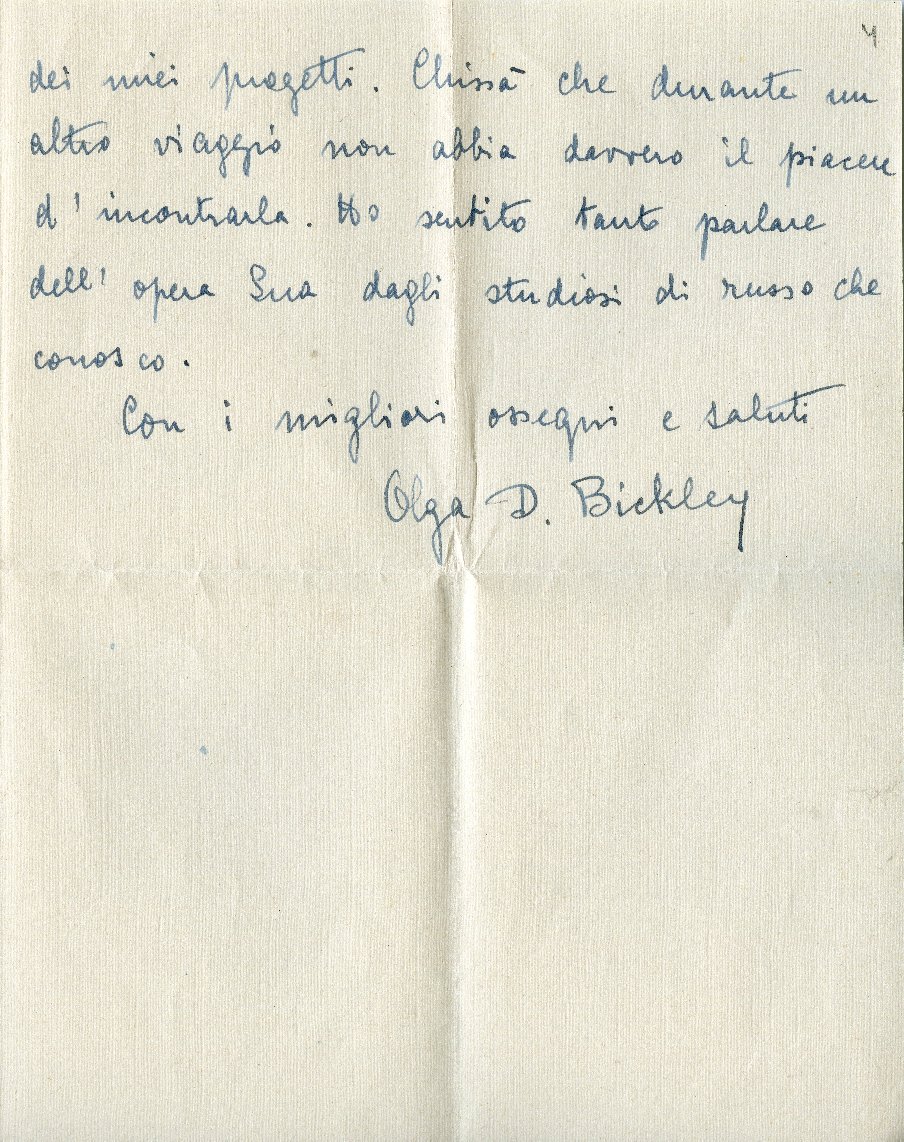 4
dei miei progetti. Chissà che durante un
altro viaggio non abbia davvero il piacere
d'incontrarla. Ho sentito tanto parlare
dell'opera Sua dagli studiosi di russo che
conosco.
Con i migliori ossequi e saluti
Olga D. Bickley